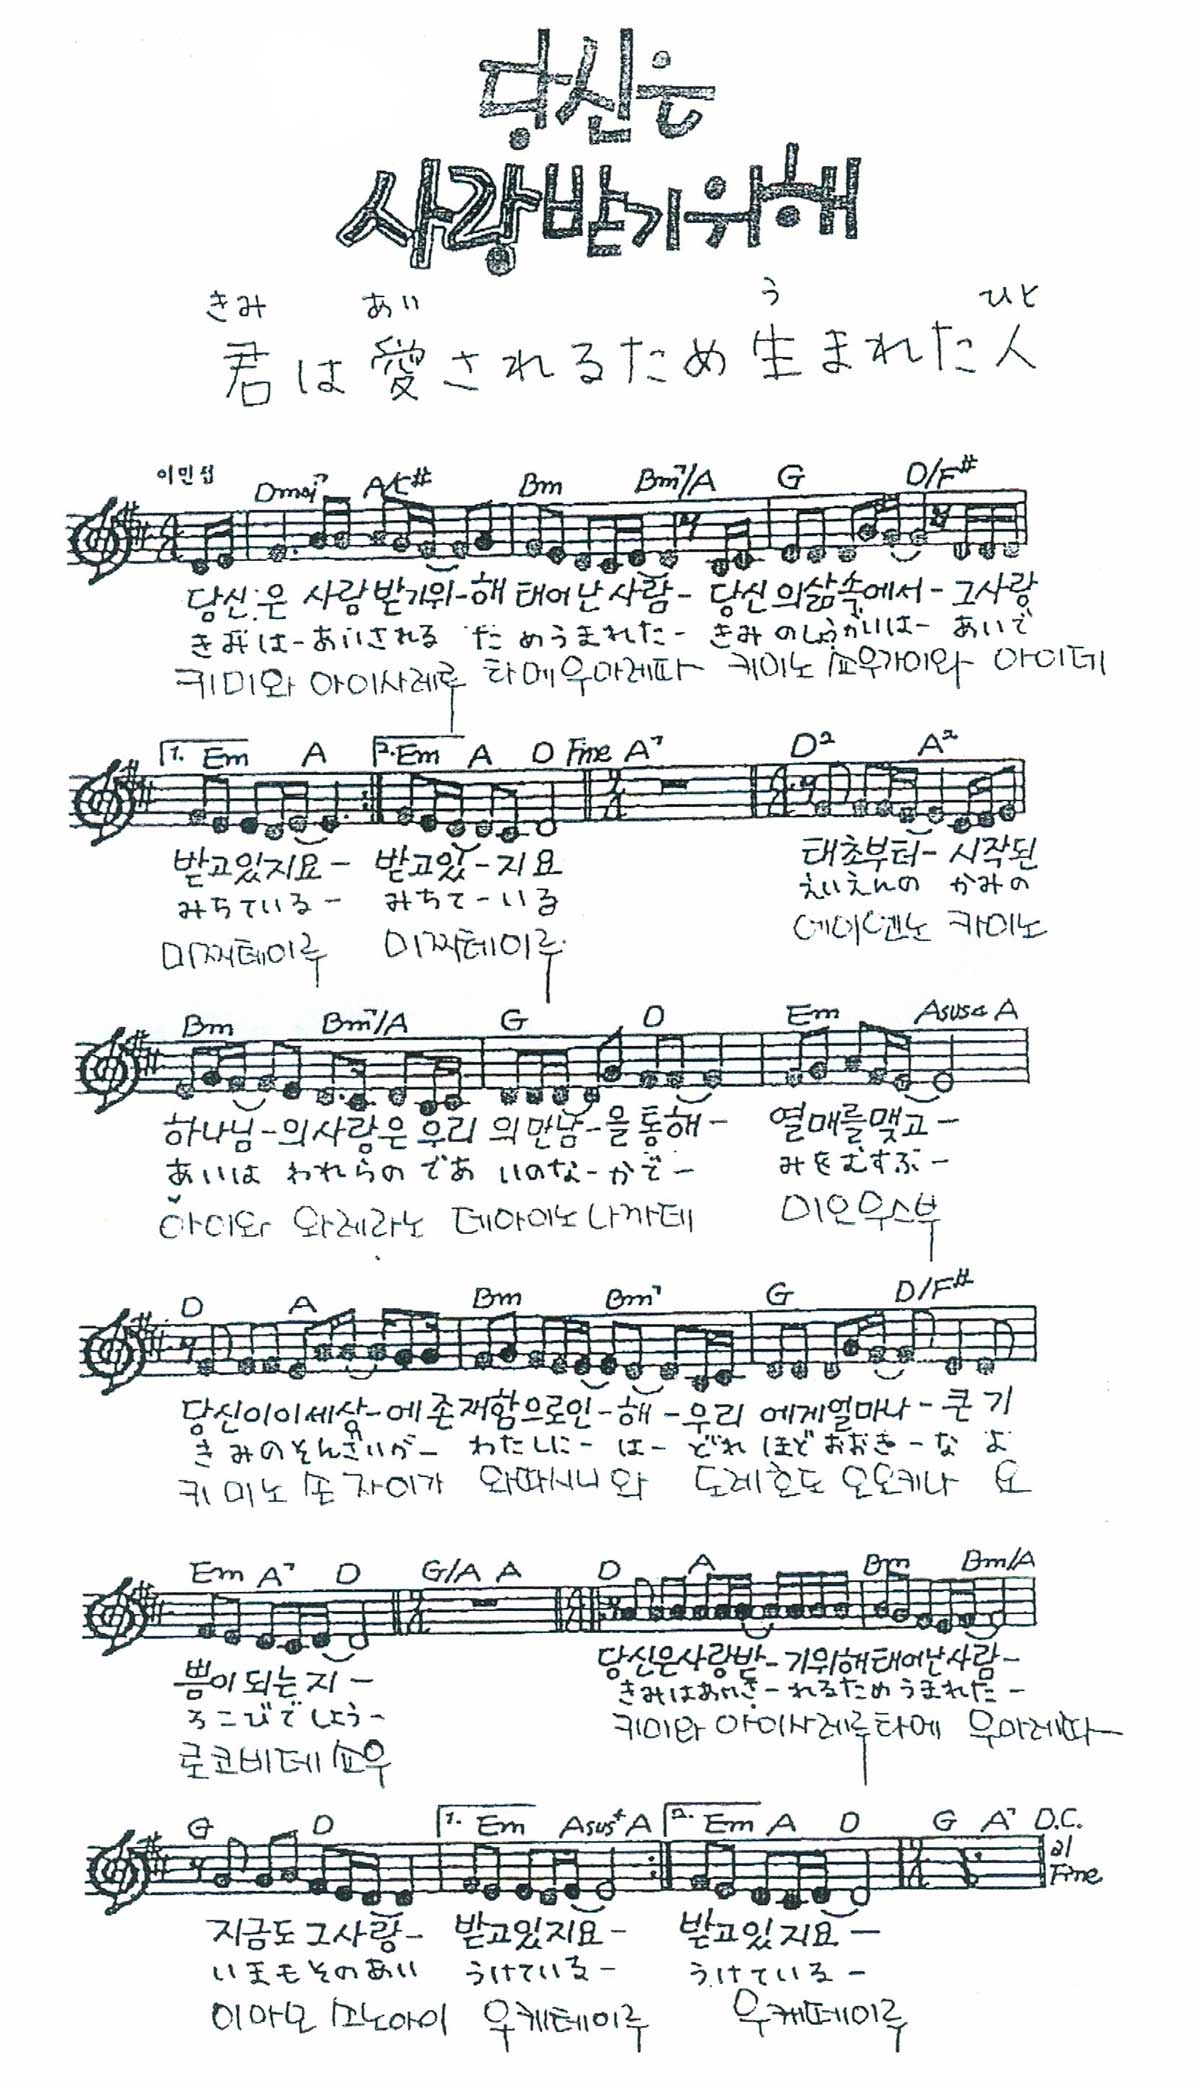 당신은
사랑받기위해
きみ あい う ひと
君は愛されるため生まれた人
이민섭
Dmaj7 A/C# Bm Bm7/A G D/F#
당신은 사랑받기위-해 태어난사람- 당신의삶속에서- 그사랑
きみは-あいされる ためうまれた- きみのしょうがいは- あいで
키미와 아이사레루 타메우마레따 키미노 쇼우가이와 아이데
1. Em A 2. Em A D Fine A7 D2 A2
받고있지요- 받고있-지요 태초부터- 시작된
みちている- みちて-いる えいえんの かみの
미찌테이루 미찌테이루 에이엔노 카미노
Bm Bm7/A G D Em Asus4 A
하나님-의사랑은우리 의만남-을통해- 열매를맺고-
あいは われらの であ いのな-かで- みをむすぶ-
아이와 와레라노 데아이노나까데 미오무스부
D A Bm Bm7 G D/F#
당신이이세상-에존재함으로인-해-우리 에게얼마나-큰기
きみのそんざいが- わたしに-は-どれ ほどおおき-な よ
키미노 손자이가 와따시니와 도레호도 오오키나 요
Em A7 D G/A A D A Bm Bm/A
쁨이되는지- 당신은사랑받-기위해태어난사람-
ろこびでしょう- きみはあいさ-れるためうまれた-
로코비데쇼우 키미와 아이사레루타메 우마레따-
G D 1. Em Asus4 A 2. Em A D G A7 D.C. al Fine
지금도그사랑- 받고있지요- 받고있지요-
いまもそのあい うけている- うけている-
이마모 소노아이 우케테이루 우케떼이루